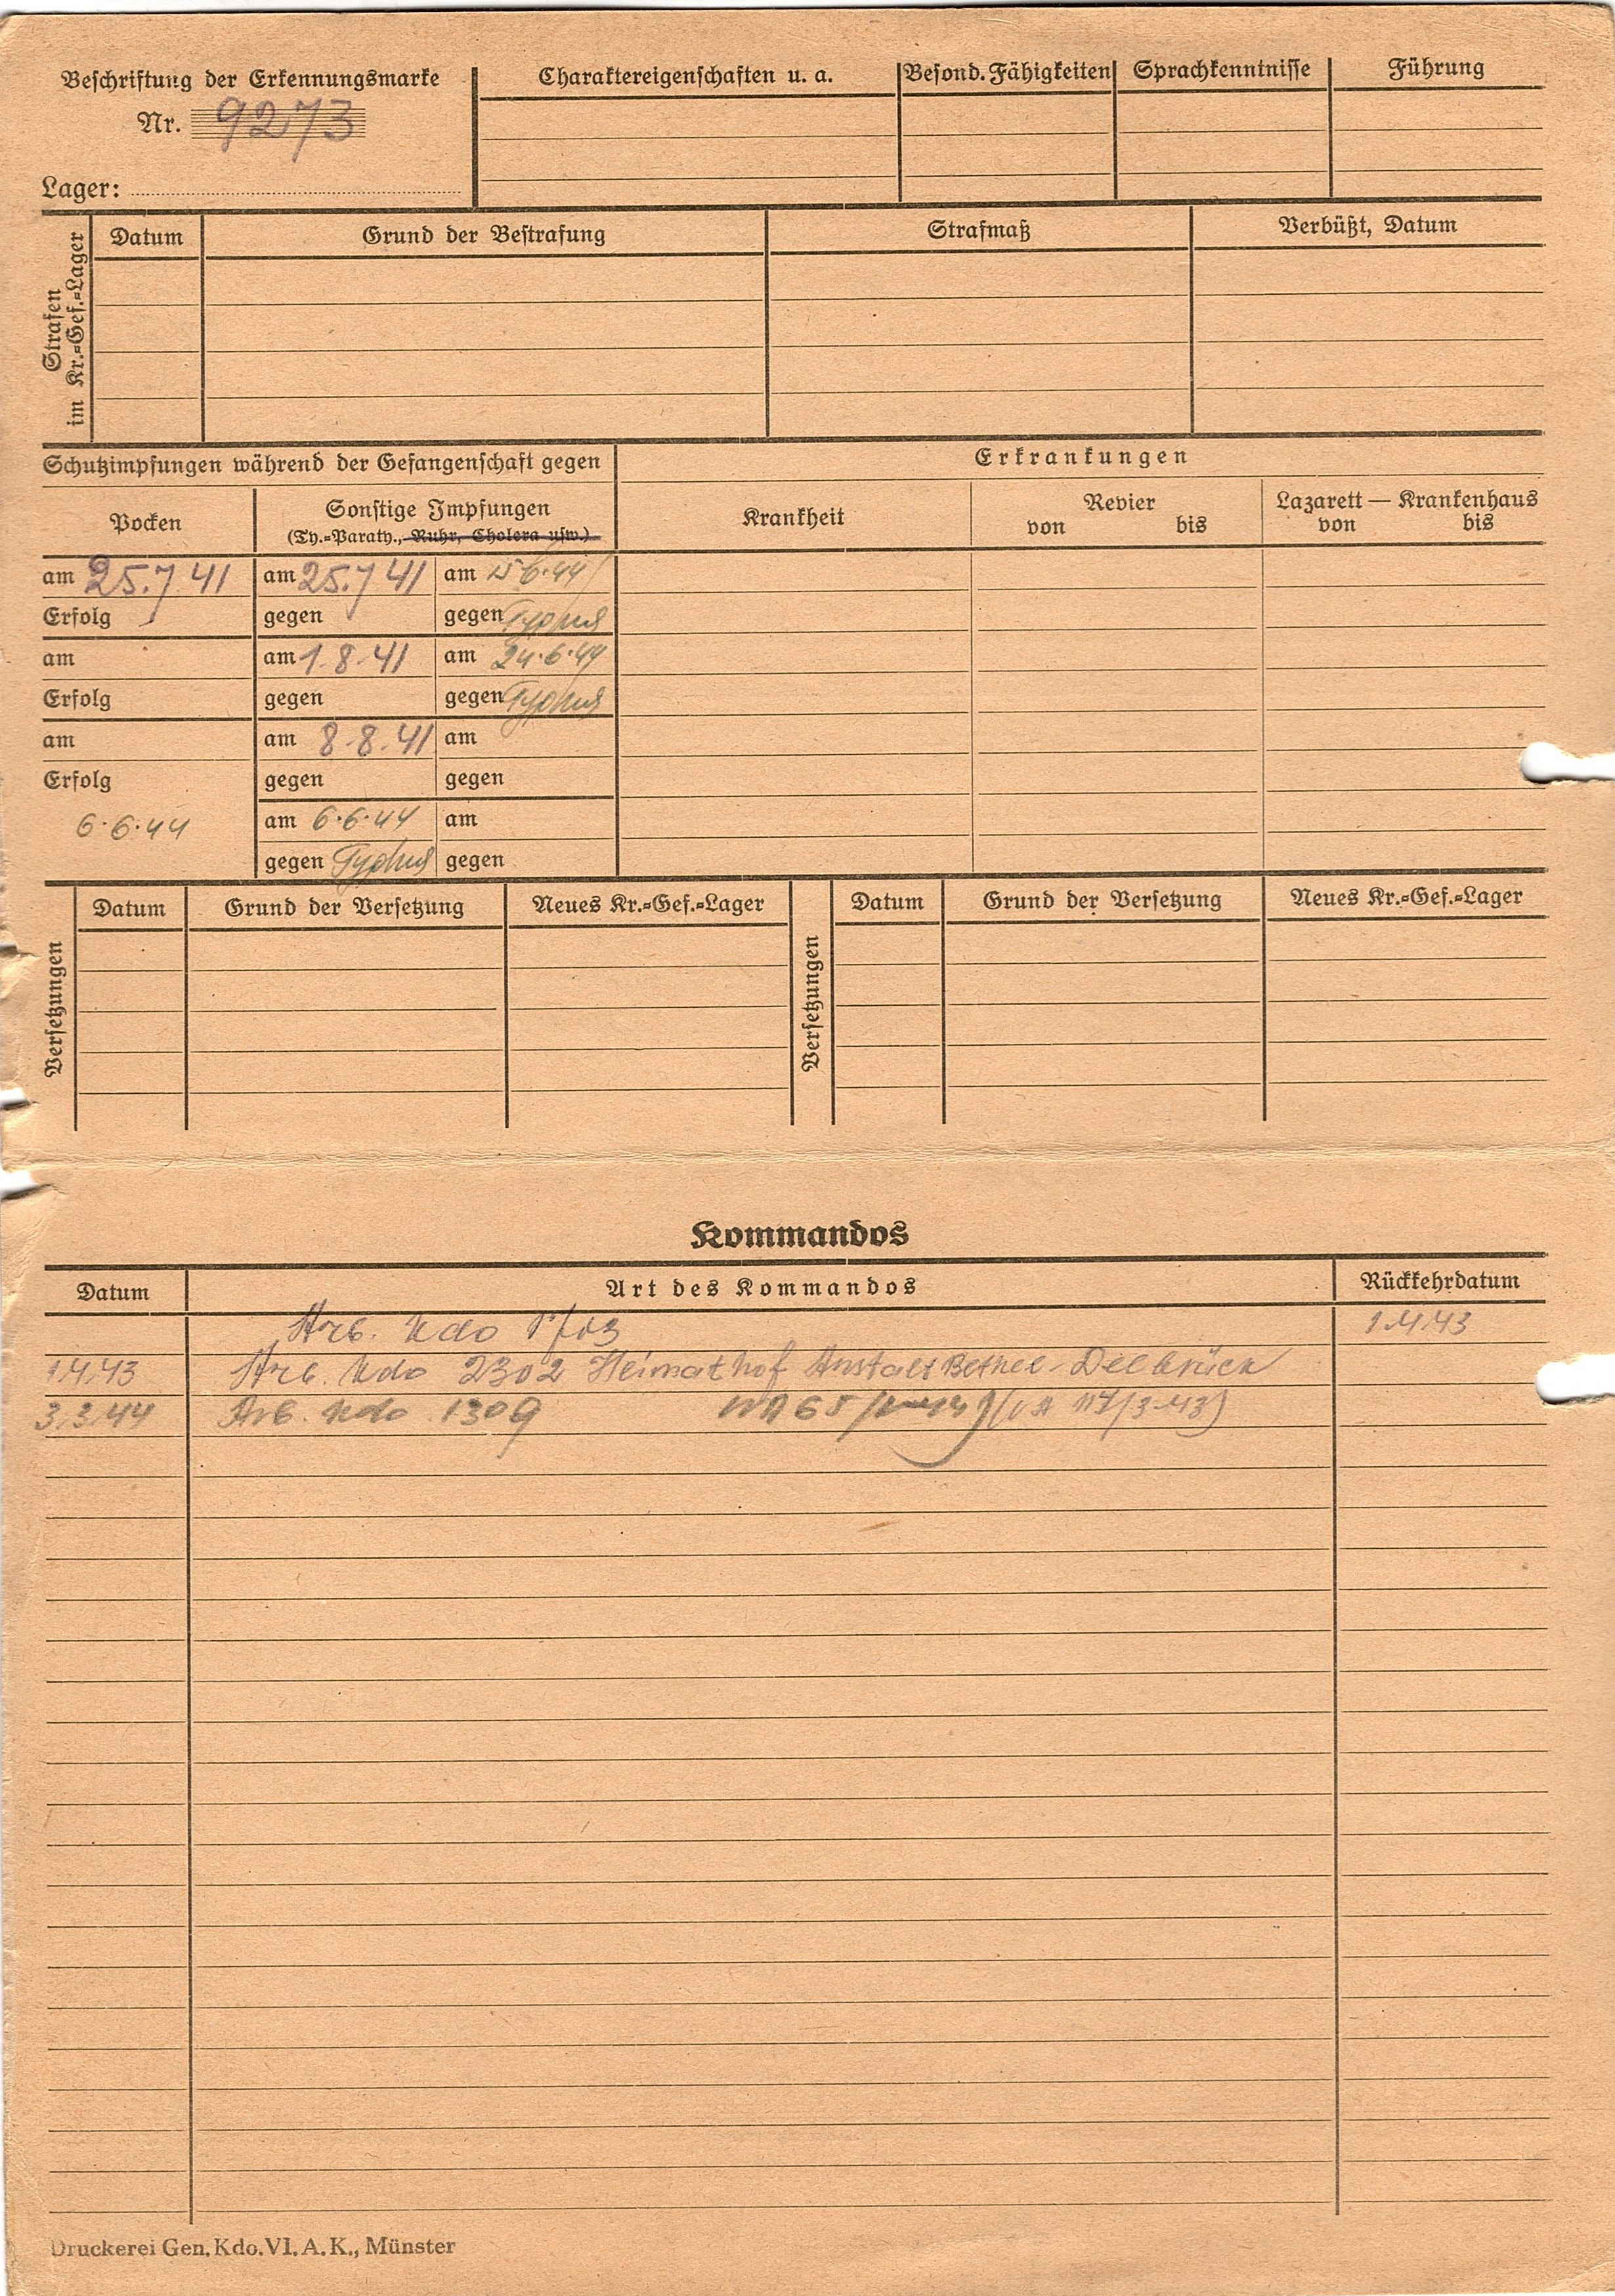 Beschriftung der Erkennungsmarke
Nr. 9273
Lager:
Charaktereigenschaften u. a.
Besond. Fähigkeiten
Sprachkenntnisse
Führung
Strafen
im Kr.=Gef.=Lager
Datum
Grund der Bestrafung
Strafmaß
Verbüßt, Datum
Schutzimpfungen während der Gefangenschaft gegen
Erkrankungen
Pocken
Sonstige Impfungen
(Ty.=Paraty., Ruhr, Cholera usw.)
Krankheit
Revier
von bis
Lazarett — Krankenhaus
von bis
am 25.7.41 am 25.7.41 am 15.6.44
Erfolg gegen gegen Typhus
am am 1.8.41 am 24.6.44
Erfolg gegen gegen Typhus
am am 8.8.41 am
Erfolg gegen gegen
6.6.44 am 6.6.44 am
gegen Typhus gegen
Versetzungen
Datum Grund der Versetzung Neues Kr.=Gef.=Lager
Versetzungen
Datum Grund der Versetzung Neues Kr.=Gef.=Lager
Kommandos
Datum Art des Kommandos Rückkehrdatum
Arb. Kdo 1.4.43
1.4.43 Arb. Kdo 2302 Heimathof Anstalt Bethel-Delbrück
3.3.44 Arb. Kdo 1309
Druckerei Gen. Kdo. VI. A. K., Münster